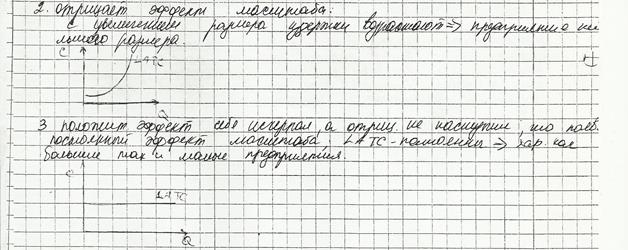 2. отрицает эффект масштаба:
С увеличением размера издержки возрастают => предприятие
размера.
C
LATC
Q
3 положит эффект себя исчерпал, а отриц. не наступил, то
постоянный эффект масштаба, LATC - постоянны => хар. как
большие так и малые предприятия.
C
LATC
Q